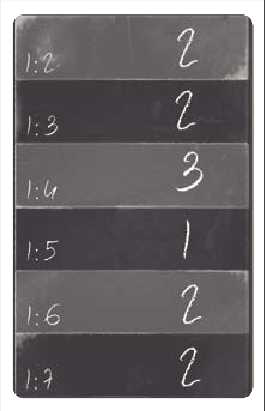 1:2 2
1:3 2
1:4 3
1:5 1
1:6 2
1:7 2